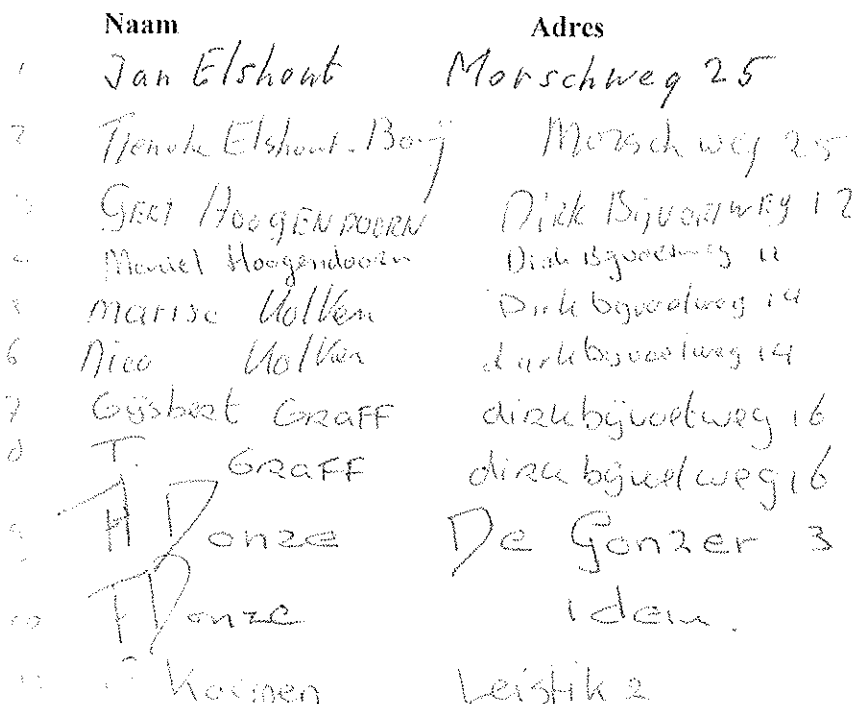 Naam Adres
1 Jan Elshout Morschweg 25
2 Tieneke Elshout-Booij Morschweg 25
3 GERT HOOGENDOORN Dirk Bijvoetweg 12
4 Hoogendoorn Dirk Bijvoetweg 12
5 Marise Kolken Dirk bijvoetweg 14
6 Nico Kolken dirk bijvoetweg 14
7 Gijsbert GRAFF dirk bijvoetweg 16
8 T. GRAFF dirk bijvoetweg 16
9 H Donze De Gonzer 3
10 Donze idem.
11 Leistik 2